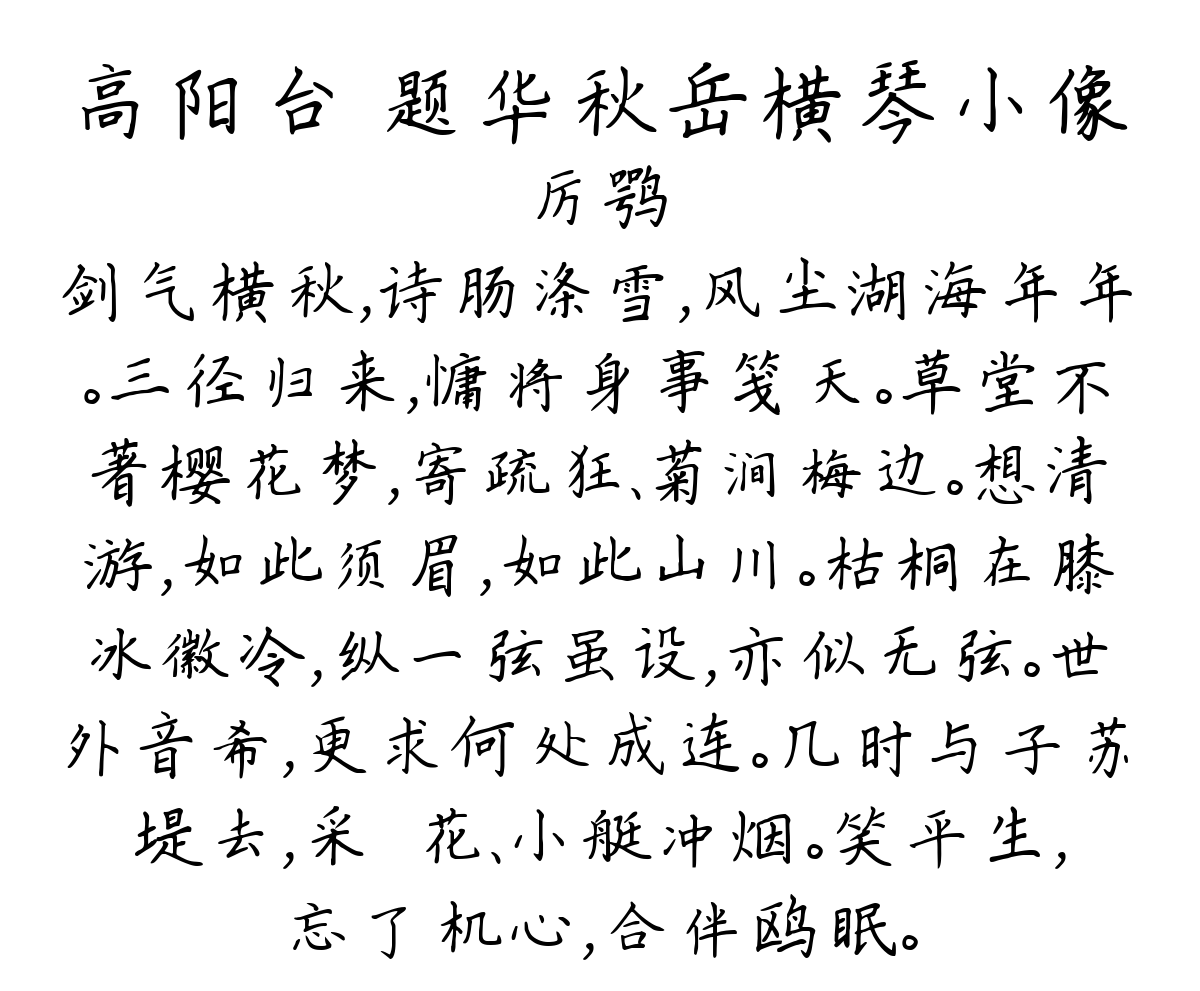 高阳台 题华秋岳横琴小像
厉鹗
剑气横秋,诗肠涤雪,风尘湖海年年
。三径归来,慵将身事笺天。草堂不
著樱花梦,寄疏狂、菊涧梅边。想清
游,如此须眉,如此山川。枯桐在膝
冰徽冷,纵一弦虽设,亦似无弦。世
外音希,更求何处成连。几时与子苏
堤去,采 花、小艇冲烟。笑平生,
忘了机心,合伴鸥眠。